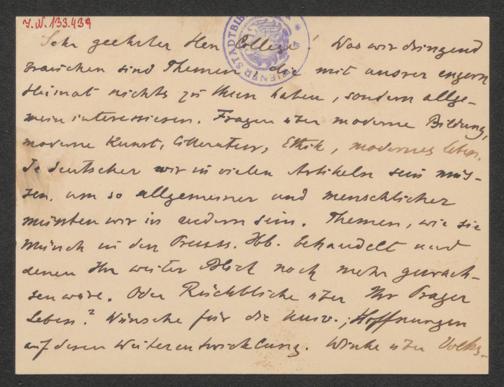 J.N. 133.439
WIENER STADTBIBL
Sehr geehrter Herr College! Was wir dringend
brauchen sind Themen die mit unsrer engern
Heimat nichts zu thun haben, sondern allge-
mein interessieren. Fragen über moderne Bildung,
moderne Kunst, Litteratur, Ethik, modernes Leben.
Je deutscher wir in vielen Artikeln sein müs-
sen, um so allgemeiner und menschlicher
müssten wir in andern sein. Themen, wie sie
Münch in den Preuss. Jbb. behandelt und
denen Ihr weiter Blick noch mehr gewach-
sen wäre. Oder Rückblicke über Ihr Prager
Leben? Wünsche für die Univ.; Hoffnungen
auf deren Weiterentwicklung. Winke über Volks-